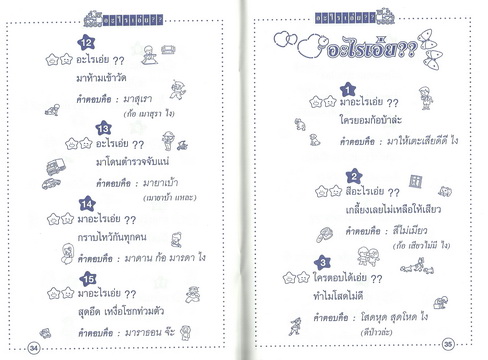 อะไรเอ่ย??
12
อะไรเอ่ย ??
มาห้ามเข้าวัด
คำตอบคือ : มาสุรา
(ก้อ เมาสุรา ไง)
13
อะไรเอ่ย ??
มาโดนตำรวจจับแน่
คำตอบคือ : มายาเบ้า
(เมายาบ้า แหละ)
14
มาอะไรเอ่ย ??
กราบไหว้กันทุกคน
คำตอบคือ : มาดาน ก้อ มารดา ไง
15
มาอะไรเอ่ย ??
สุดอึด เหงื่อโชกท่วมตัว
คำตอบคือ : มาราธอน จ๊ะ
34
อะไรเอ่ย??
อะไรเอ่ย??
1
มาอะไรเอ่ย ??
ใครยอมก้อบ้าล่ะ
คำตอบคือ : มาให้เตะเสียดีดี ไง
2
สีอะไรเอ่ย ??
เกลี้ยงเลยไม่เหลือให้เสียว
คำตอบคือ : สีไม่เมียว
(ก้อ เสียวไม่มี ไง)
3
ใครตอบได้เอ่ย ??
ทำไมโสดไม่ดี
คำตอบคือ : โสดหุด สุดโหด ไง
(ดีป่าวล่ะ)
35